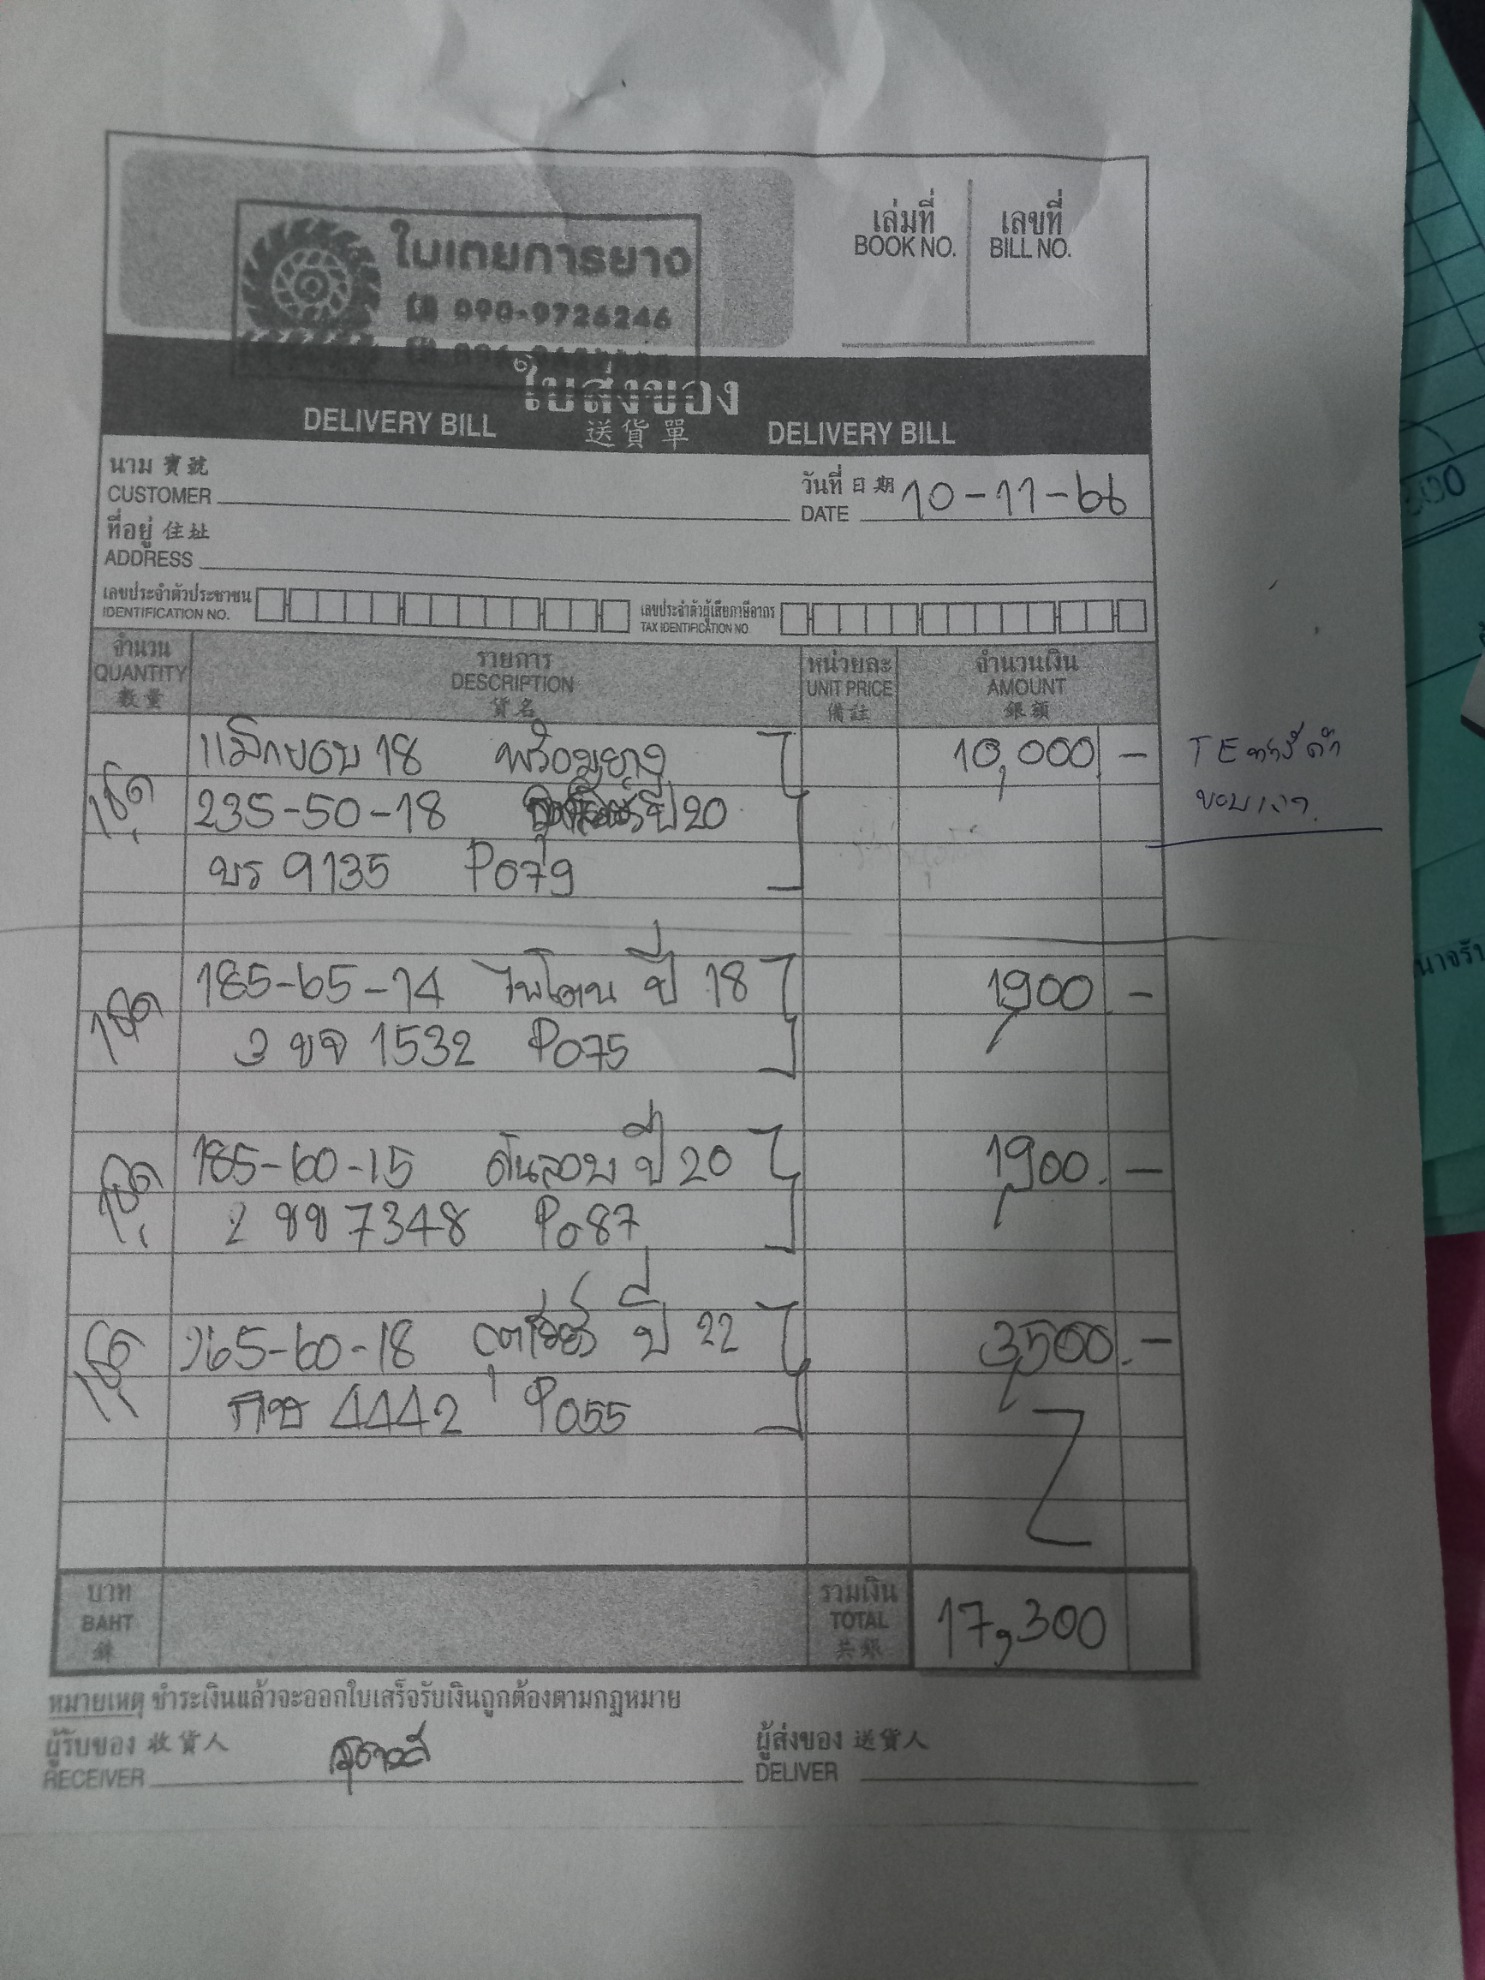 ใบเตยการยาง
090-9726246
เล่มที่ เลขที่
BOOK NO. BILL NO.
ใบส่งของ
DELIVERY BILL 送貨單 DELIVERY BILL
นาม 寶號 วันที่ 日期 10-11-66
CUSTOMER DATE
ที่อยู่ 住址
ADDRESS
เลขประจำตัวประชาชน เลขประจำตัวผู้เสียภาษีอากร
IDENTIFICATION NO. TAX IDENTIFICATION NO.
จำนวน รายการ หน่วยละ จำนวนเงิน
QUANTITY DESCRIPTION UNIT PRICE AMOUNT
數量 貨名 備註 銀額
แม็กขอบ 18 พร้อมยาง 10,000 -
1ชุด 235-50-18 ปี 20
บร 9135 P079
185-65-14 ไพโตน ปี 18 1,900 -
1ชุด 3 ขจ 1532 P075
185-60-15 ดันลอบ ปี 20 1,900.-
1ชุด 2 ขข 7348 P087
265-60-18 ปี 22 3,500.-
1ชุด 4442 P055
บาท รวมเงิน
BAHT TOTAL 17,300
共銀
หมายเหตุ ชำระเงินแล้วจะออกใบเสร็จรับเงินถูกต้องตามกฎหมาย
ผู้รับของ 收貨人 ผู้ส่งของ 送貨人
RECEIVER DELIVER
TE